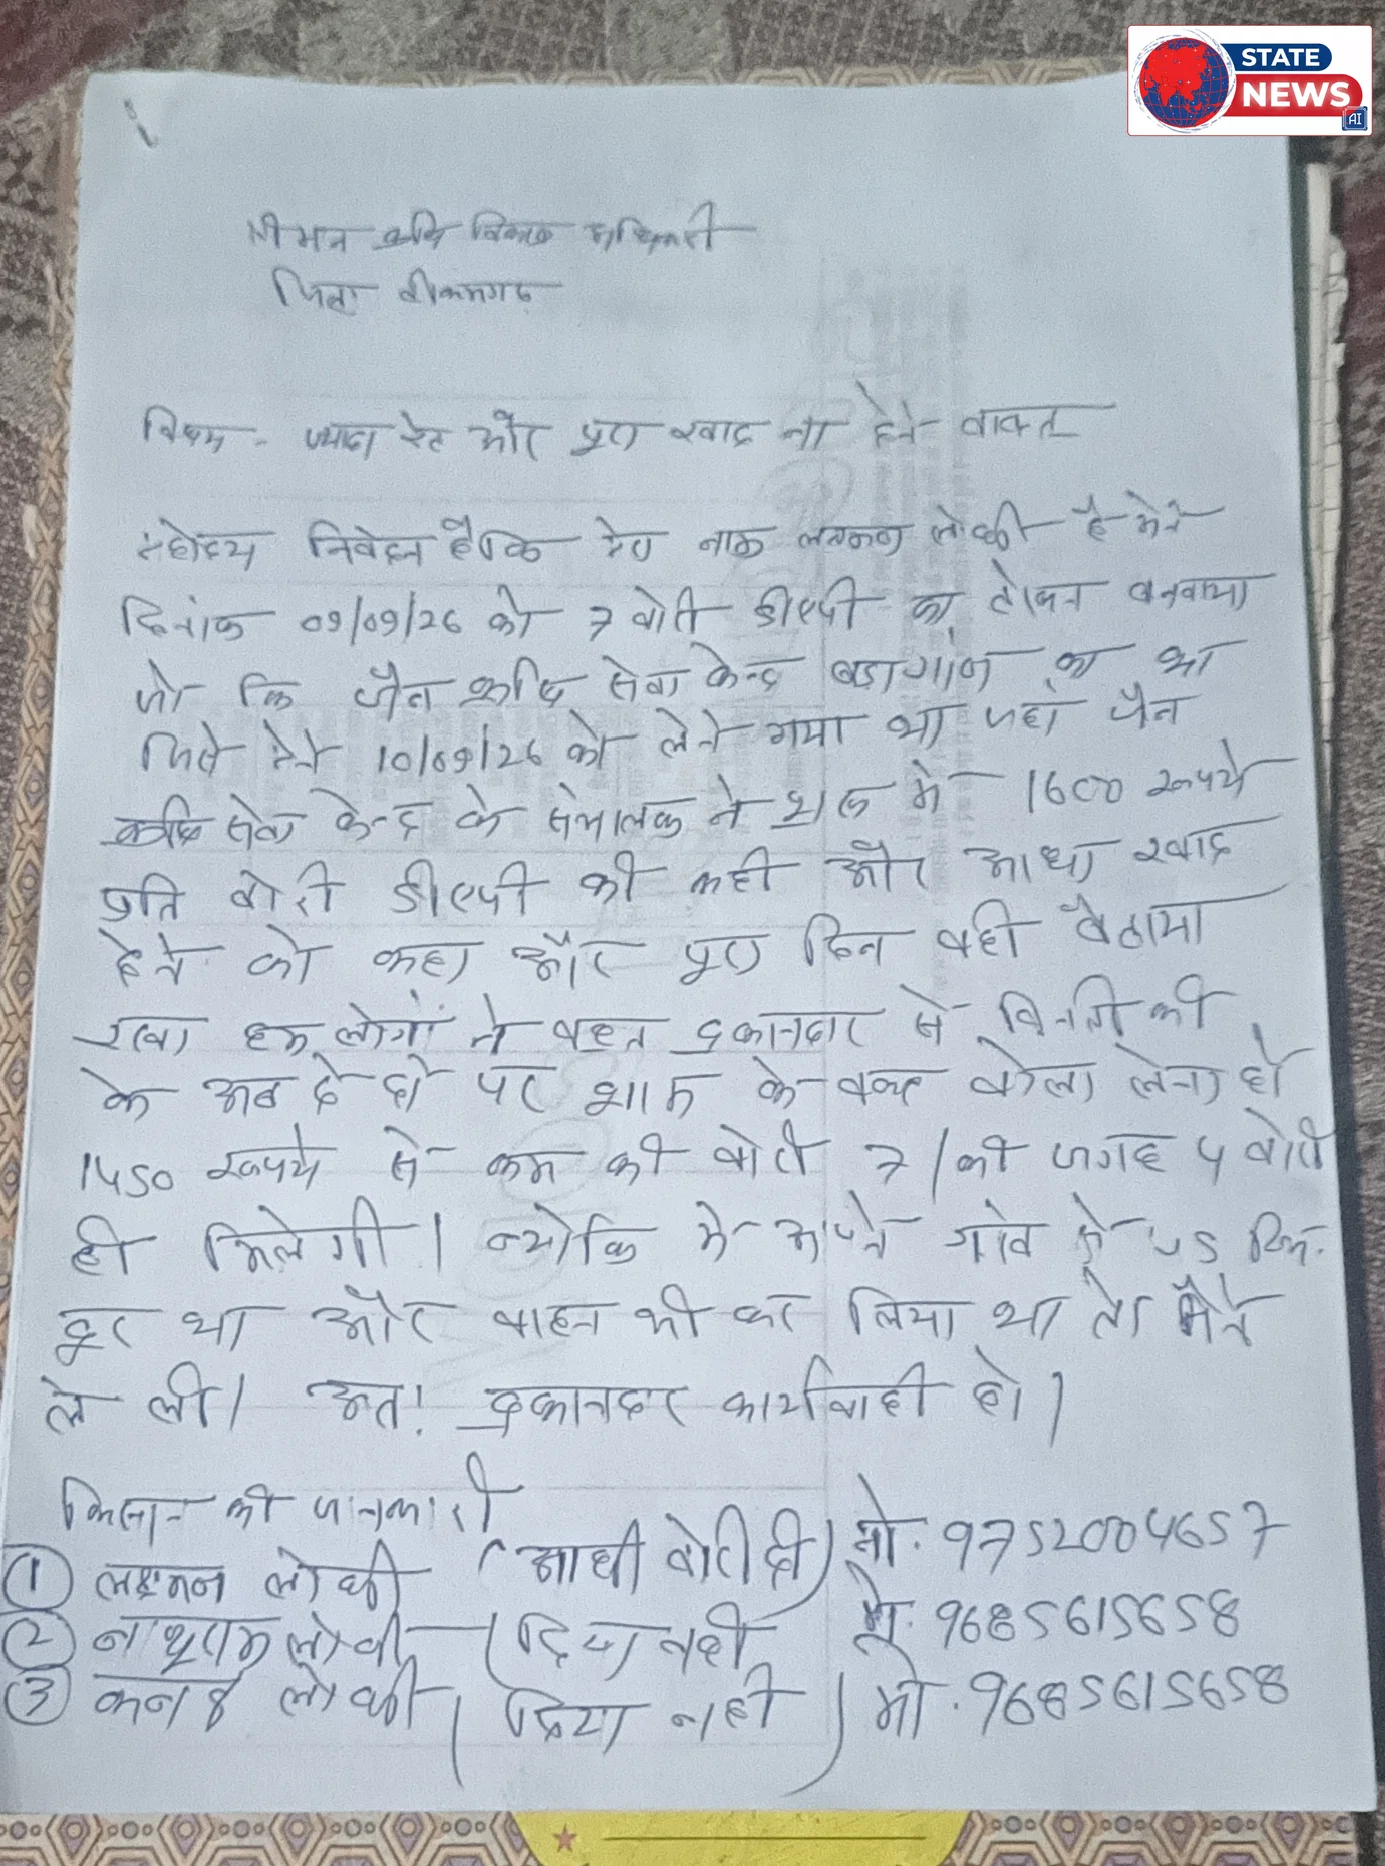 STATE
NEWS
AI
श्रीमान कृषि विकास अधिकारी
जिला टीकमगढ़
विषय - ज्यादा रेट और पूरा खाद ना देने वाबत
महोदय निवेदन है कि मेरा नाम लक्ष्मण लोधी है मेने
दिनांक 09/09/26 को 7 बोरी डीएपी का टोकन बनवाया
जो कि जैन कृषि सेवा केन्द्र बडागांव का था
जिसे मेने 10/09/26 को लेने गया था जहां जैन
कृषि सेवा केन्द्र के संचालक ने शुरू मे 1600 रूपये
प्रति बोरी डीएपी की कही और आधा खाद
देने को कहा और पूरा दिन वही बैठाया
रखा हम लोगों ने बहुत दुकानदार से विनती की
के अब दे दो पर शाम के वक्त बोला लेना हो
1450 रूपये से कम की बोरी 7 / की जगह 4 बोरी
ही मिलेगी। क्योकि मे अपने गांव से 45 किमी
दूर था और वाहन भी कर लिया था तो मैने
ले ली। अत! दुकानदार कार्यवाही हो।
किसान की जानकारी
① लक्ष्मन लोधी (आधी बोरी दी) मो. 9752004657
② नाथूराम लोधी (दिया नही मो. 9685615658
③ लोधी (दिया नही) मो. 9685615658